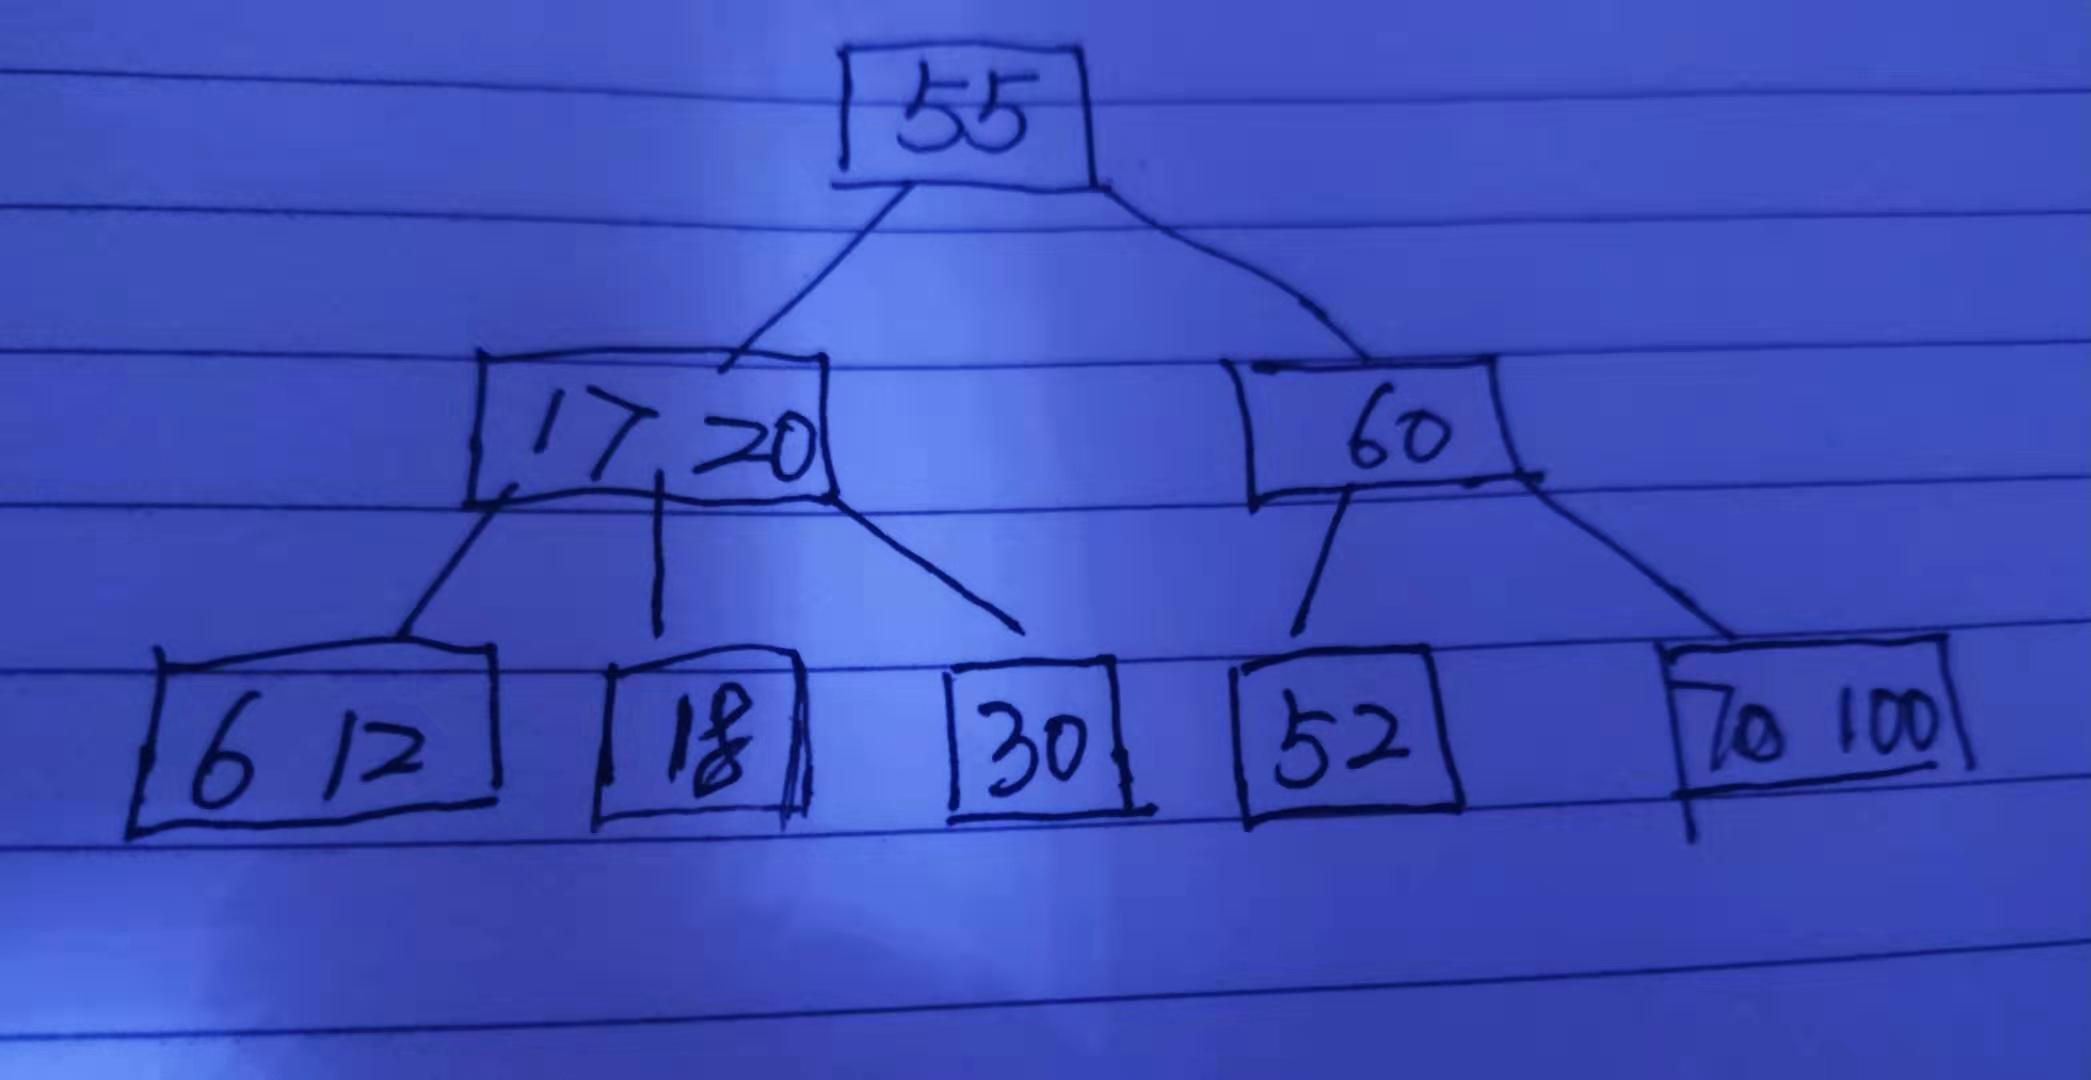 55
17 20 60
6 12 18 30 52 70 100